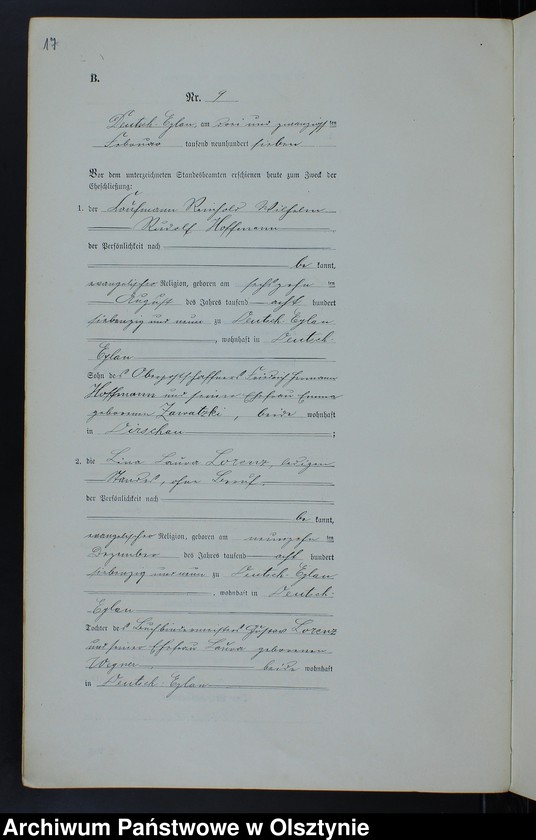 17
B.
Nr. 9
Deutsch-Eylau am drei und zwanzigsten
Februar tausend neunhundert sieben
Vor dem unterzeichneten Standesbeamten erschienen heute zum Zweck der
Eheschließung:
1. der Kaufmann Reinhold Wilhelm
Rudolf Hoffmann
der Persönlichkeit nach
be kannt,
evangelischer Religion, geboren am sechszehn ten
August des Jahres tausend acht hundert
siebenzig und neun zu Deutsch-Eylau
, wohnhaft in Deutsch-
Eylau
Sohn des Oberpostschaffners Friedrich Hermann
Hoffmann und seiner Ehefrau Emma
geborenen Zawatzki, beide wohnhaft
in Dirschau ;
2. die Lina Laura Lorenz, ledigen
Standes, ohne Beruf
der Persönlichkeit nach
be kannt,
evangelischer Religion, geboren am neunzehn ten
Dezember des Jahres tausend acht hundert
siebenzig und neun zu Deutsch-Eylau
, wohnhaft in Deutsch-
Eylau
Tochter des Buchbindermeisters Gustav Lorenz
und seiner Ehefrau Laura geborenen
Wegner beide wohnhaft
in Deutsch-Eylau
Archiwum Państwowe w Olsztynie